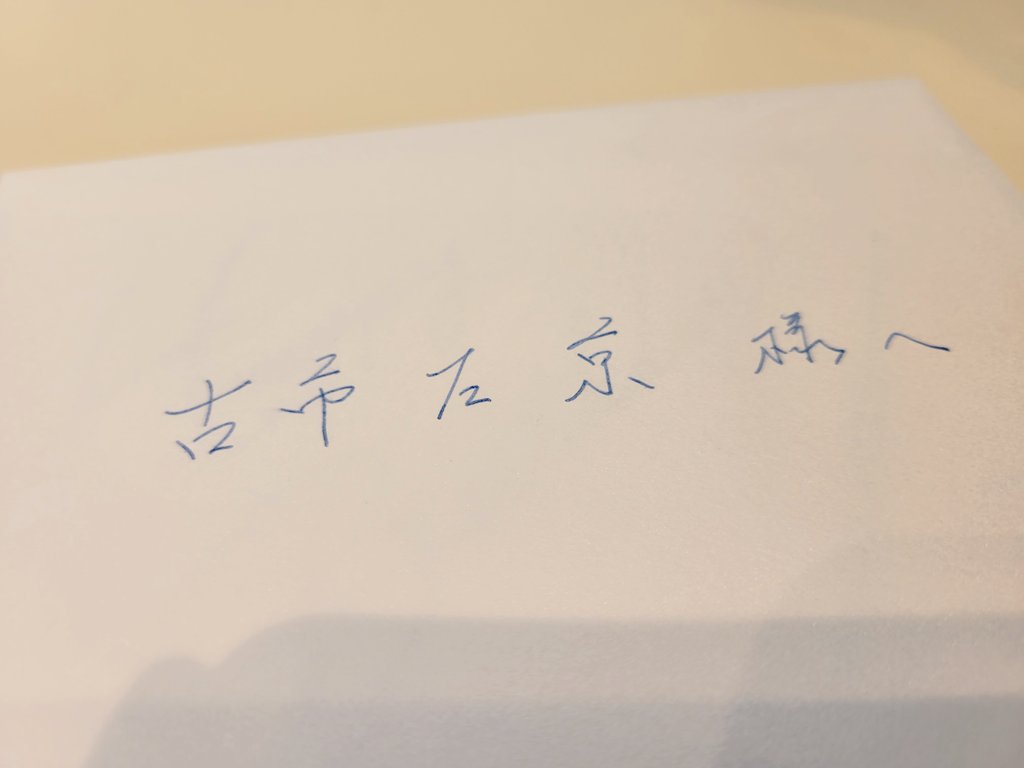 古市左京 様へ